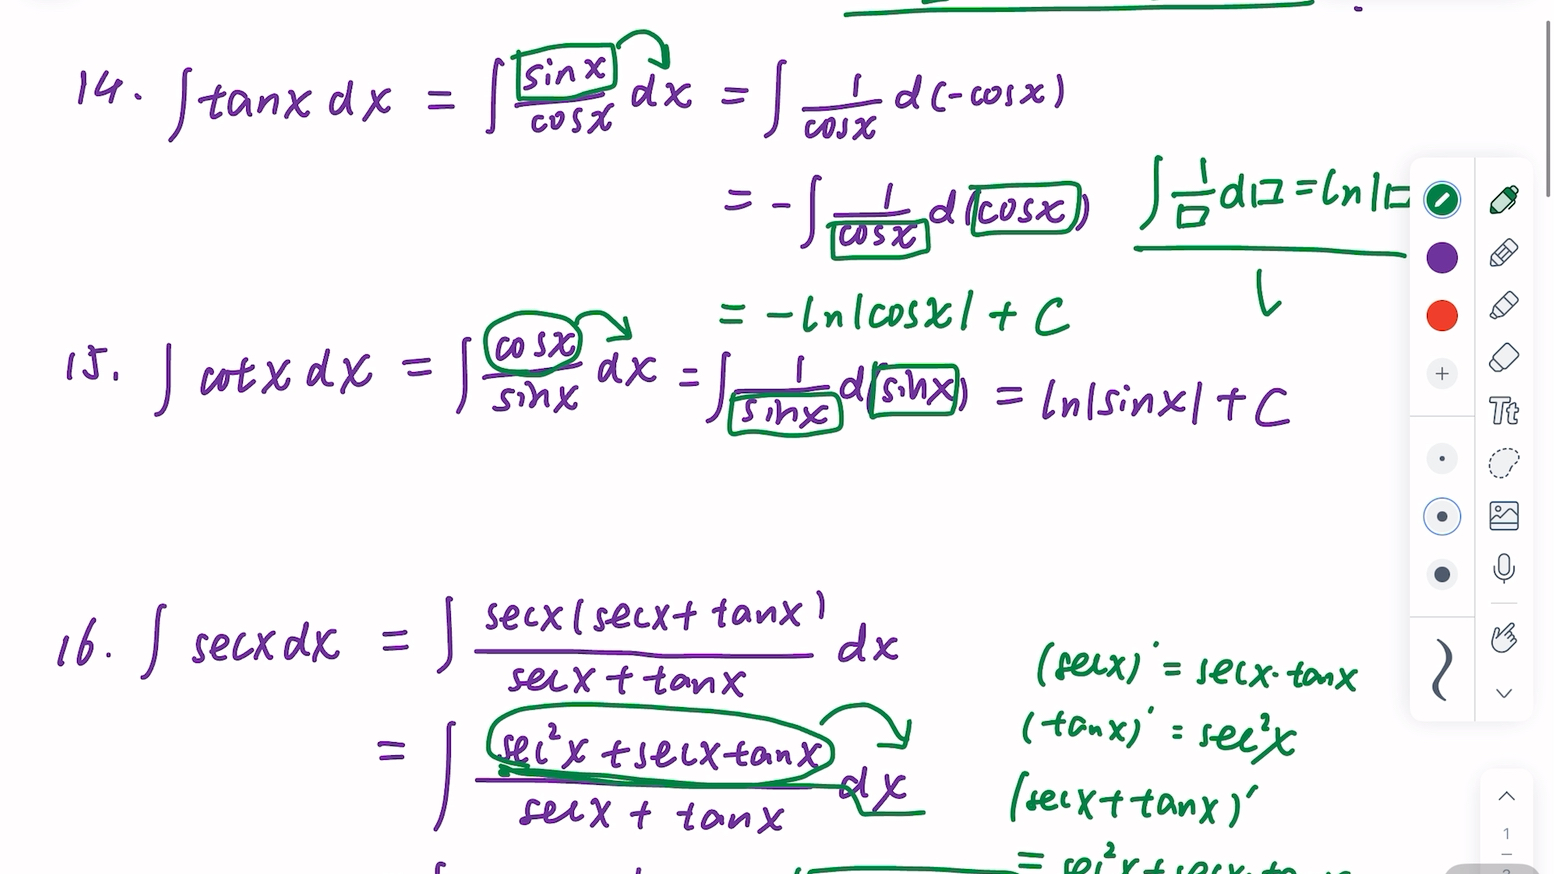 14. ∫ tanx dx = ∫ sinx/cosx dx = ∫ 1/cosx d(-cosx)
= -∫ 1/cosx d(cosx)
∫ 1/□ d□ = ln|□
= -ln|cosx| + C
15. ∫ cotx dx = ∫ cosx/sinx dx = ∫ 1/sinx d(sinx) = ln|sinx| + C
16. ∫ secx dx = ∫ secx(secx+tanx)/secx+tanx dx
= ∫ sec²x+secxtanx/secx+tanx dx
(secx)' = secx·tanx
(tanx)' = sec²x
(secx+tanx)'
= sec²x+secx
Tt
1